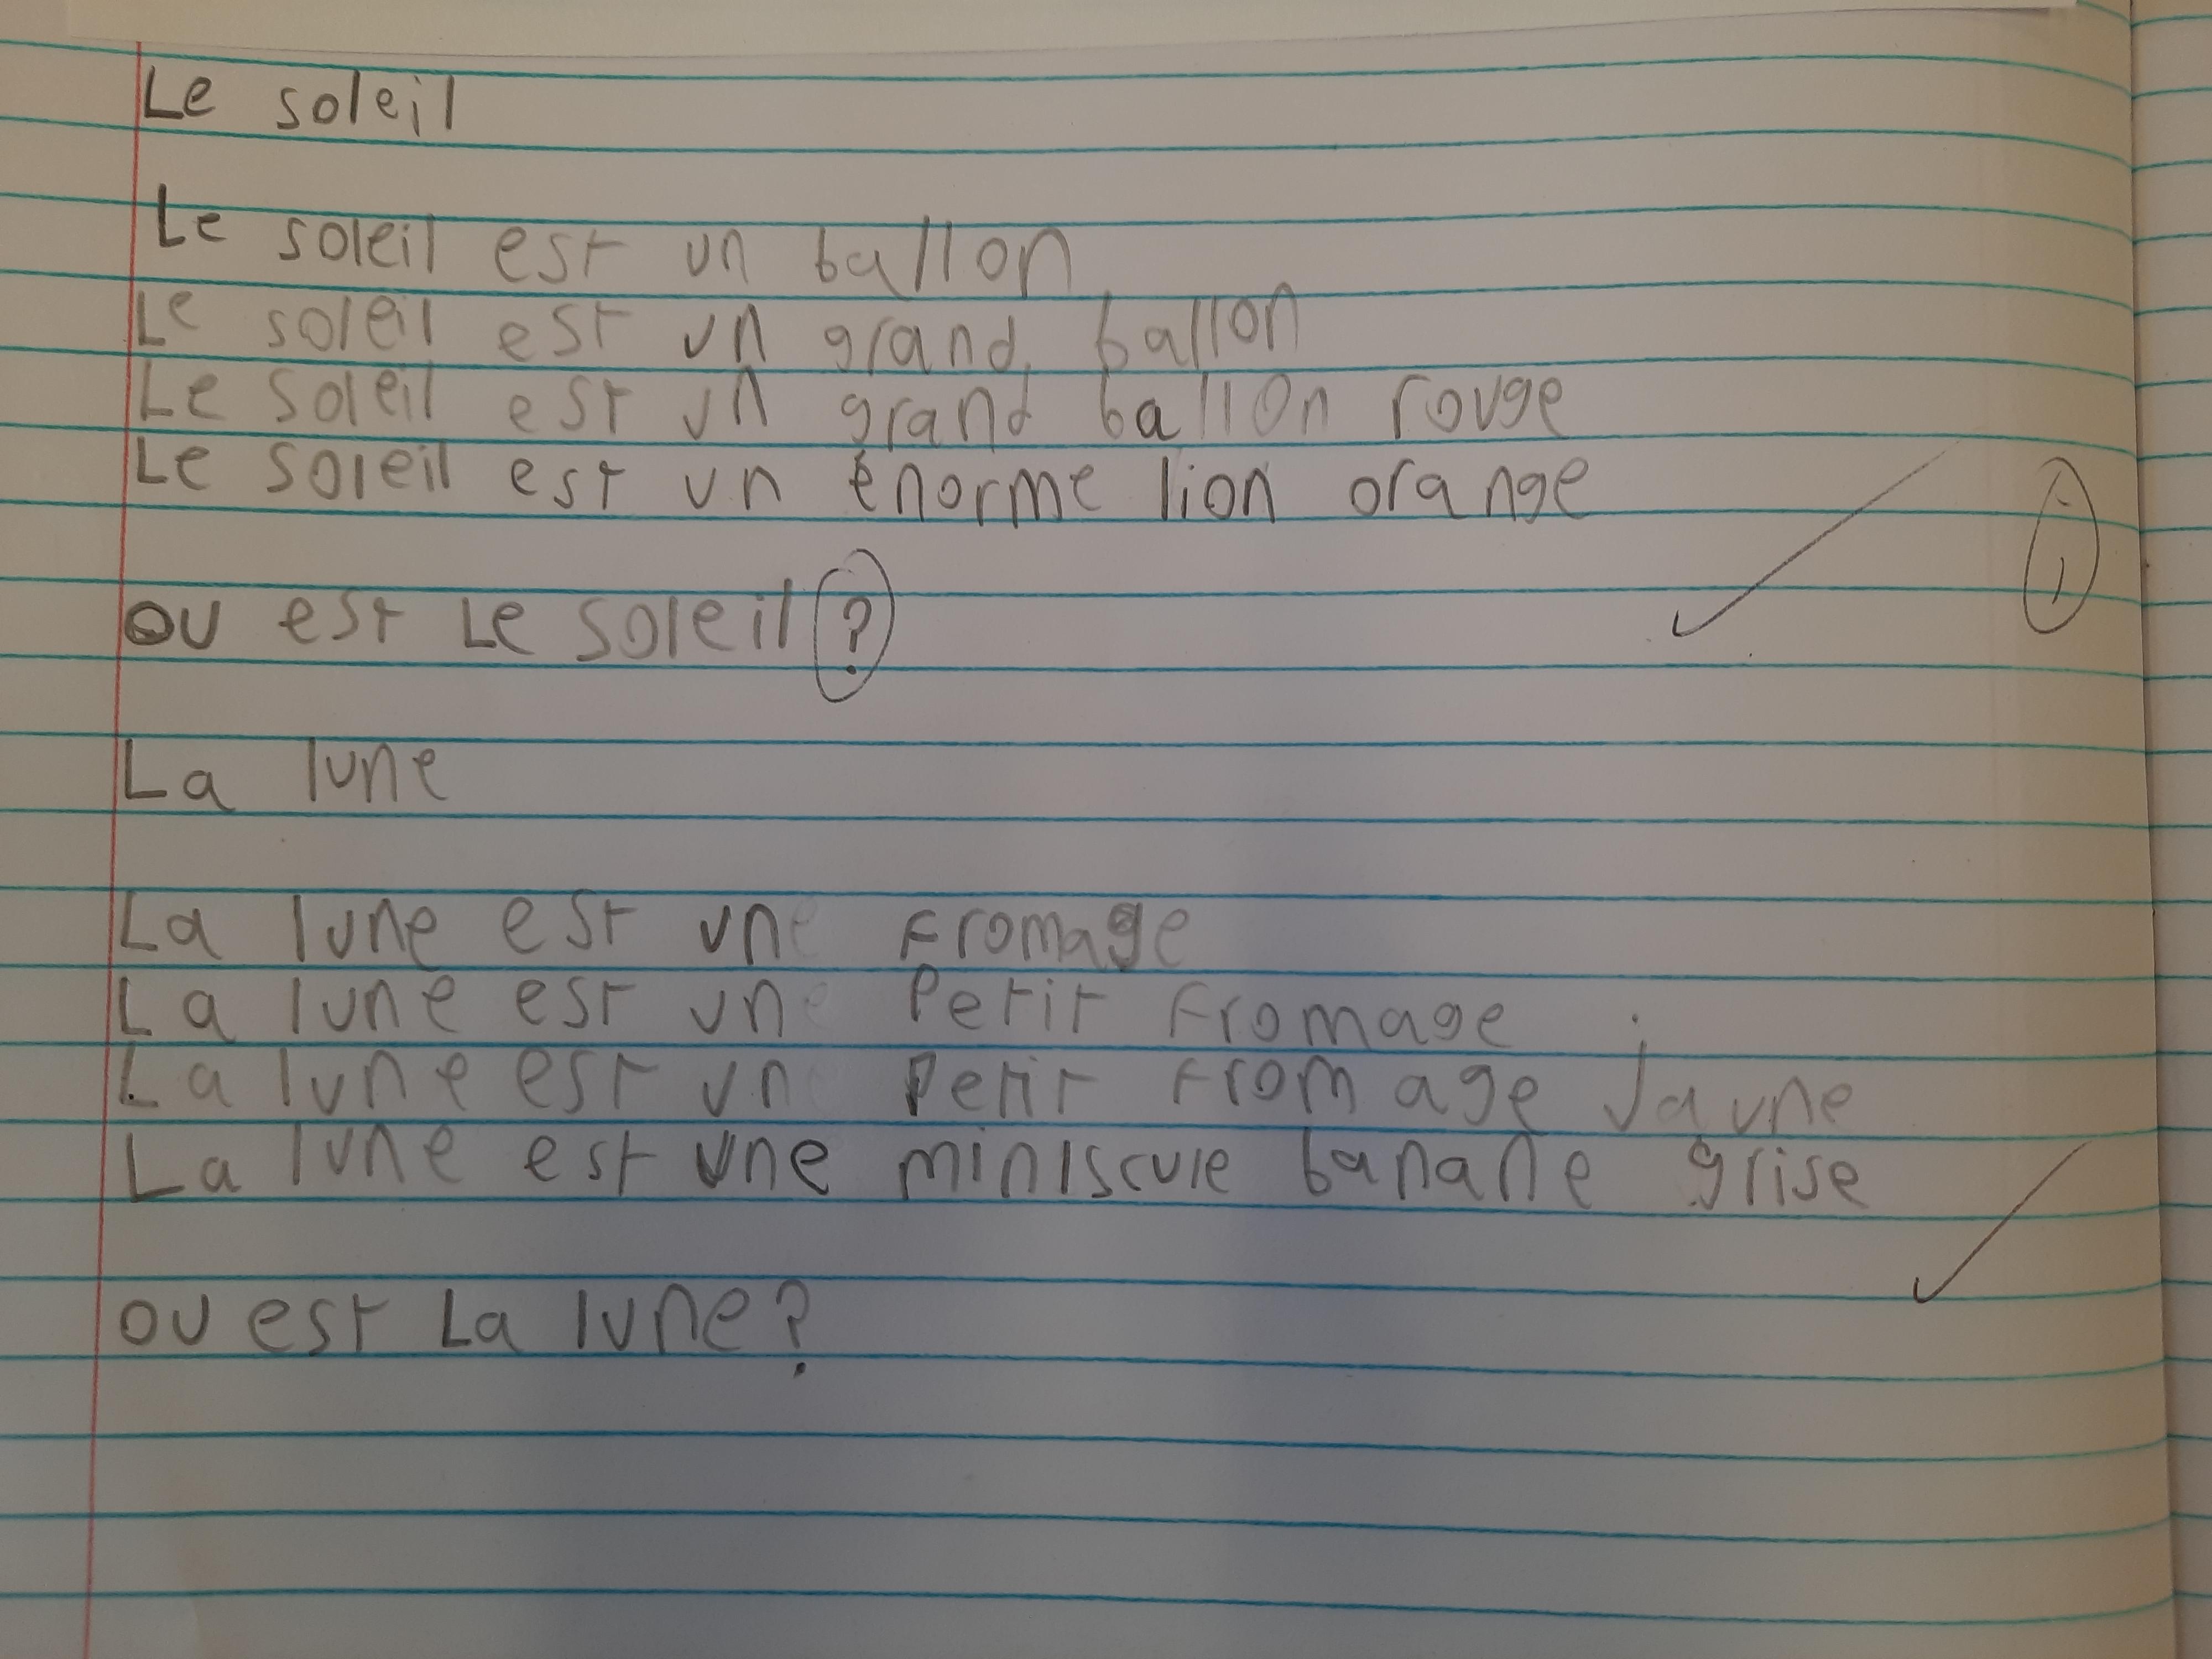 Le soleil
Le soleil est un ballon
Le soleil est un grand ballon
Le soleil est un grand ballon rouge
Le soleil est un énorme lion orange
ou est Le soleil?
La lune
La lune est un fromage
La lune est un Petit fromage
La lune est un Petit fromage jaune
La lune est une miniscule banane grise
ou est La lune?